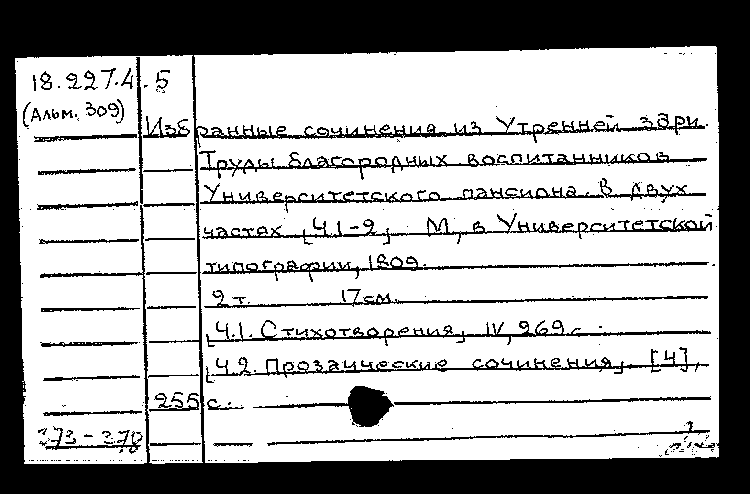 18.227.4.5
(Альм. 309)
Избранные сочинения из Утренней зари.
Труды благородных воспитанников
Университетского пансиона. В двух
частях [Ч.1-2] М., в Университетской
типографии, 1809.
2 т. 17 см.
[Ч.1. Стихотворения], IV, 269 с.
[Ч.2. Прозаические сочинения]. [4],
255 с.
373-370